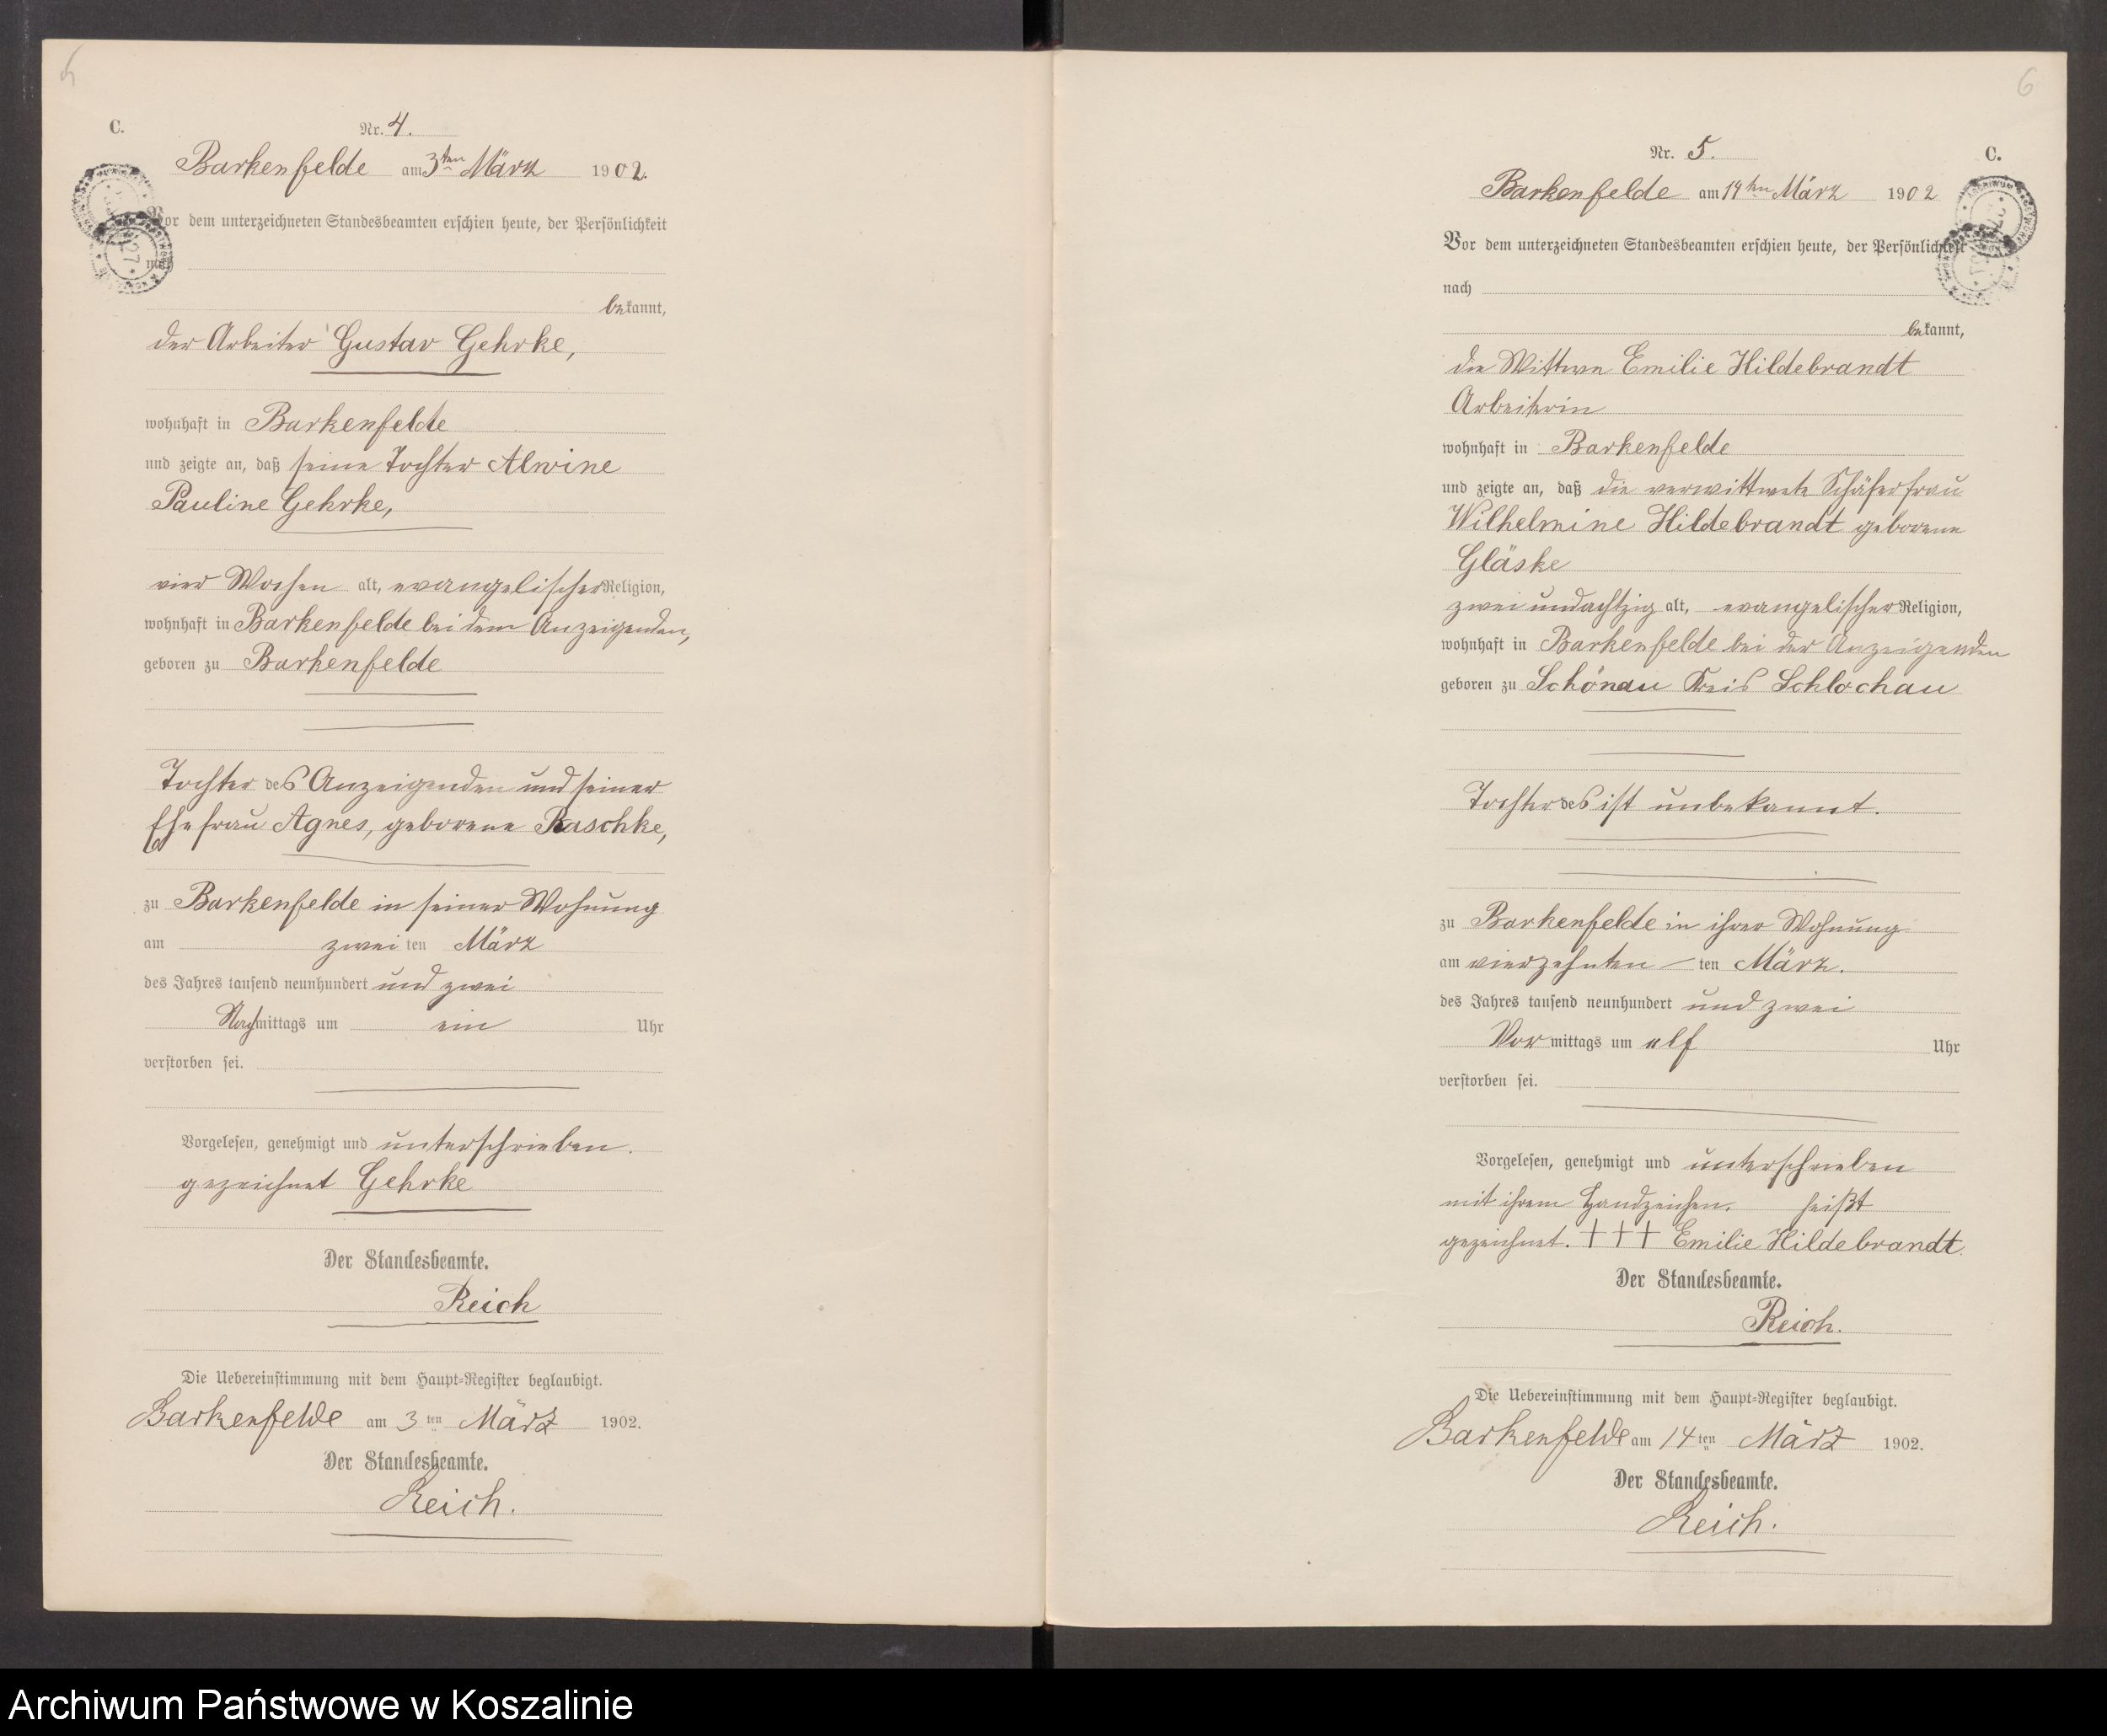 5
C.
Nr. 4.
Barkenfelde am 3ten März 1902.
Vor dem unterzeichneten Standesbeamten erschien heute, der Persönlichkeit
nach
bekannt,
der Arbeiter Gustav Gehrke,
wohnhaft in Barkenfelde
und zeigte an, daß seine Tochter Alwine
Pauline Gehrke,
vier Wochen alt, evangelischer Religion,
wohnhaft in Barkenfelde bei dem Anzeigenden,
geboren zu Barkenfelde
Tochter des Anzeigenden und seiner
Ehefrau Agnes, geborene Raschke,
zu Barkenfelde in seiner Wohnung
am zwei ten März
des Jahres tausend neunhundert und zwei
Nachmittags um ein Uhr
verstorben sei.
Vorgelesen, genehmigt und unterschrieben.
gezeichnet Gehrke
Der Standesbeamte.
Reich
Die Uebereinstimmung mit dem Haupt-Register beglaubigt.
Barkenfelde am 3ten März 1902.
Der Standesbeamte.
Reich.
6
Nr. 5.
C.
Barkenfelde am 14ten März 1902
Vor dem unterzeichneten Standesbeamten erschien heute, der Persönlichkeit
nach
bekannt,
die Wittwe Emilie Hildebrandt
Arbeiterin
wohnhaft in Barkenfelde
und zeigte an, daß die verwittwete Schäferfrau
Wilhelmine Hildebrandt geborene
Gläske
zweiundachtzig alt, evangelischer Religion,
wohnhaft in Barkenfelde bei der Anzeigenden
geboren zu Schönau Kreis Schlochau
Tochter des ist unbekannt.
zu Barkenfelde in ihrer Wohnung
am vierzehnten – ten März.
des Jahres tausend neunhundert und zwei
Vormittags um elf Uhr
verstorben sei.
Vorgelesen, genehmigt und unterschrieben
mit ihrem Handzeichen. heißt
gezeichnet. + + + Emilie Hildebrandt.
Der Standesbeamte.
Reich.
Die Uebereinstimmung mit dem Haupt-Register beglaubigt.
Barkenfelde am 14ten März 1902.
Der Standesbeamte.
Reich.
Archiwum Państwowe w Koszalinie